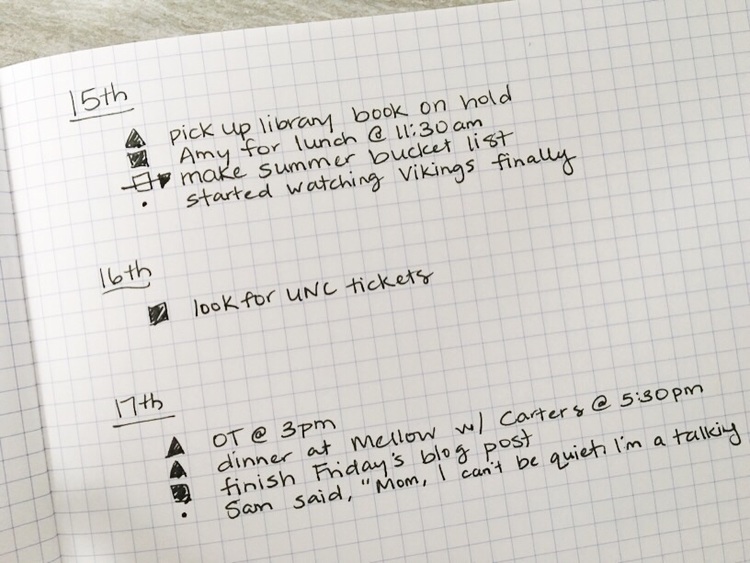 15th
pick up library book on hold
Amy for lunch @ 11:30am
make summer bucket list
started watching Vikings finally
16th
look for UNC tickets
17th
OT @ 3pm
dinner at Mellow w/ Carters @ 5:30pm
finish Friday's blog post
Sam said, "Mom, I can't be quiet, I'm a talking